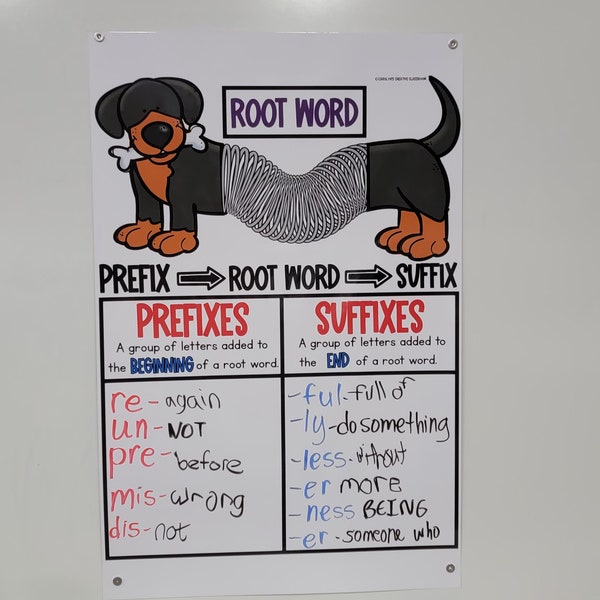 ROOT WORD
PREFIX ROOT WORD SUFFIX
PREFIXES
A group of letters added to
the BEGINNING of a root word.
re- again
un- NOT
pre- before
mis- wrong
dis- not
SUFFIXES
A group of letters added to
the END of a root word.
-ful - full of
-ly - do something
-less - without
-er more
-ness BEING
-er - someone who